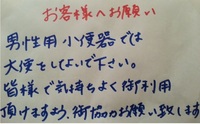 お客様へお願い
男性用小便器では
大便をしてよいで下さい。
皆様で気持ちよく御利用
頂けますよう、御協のお願い致します